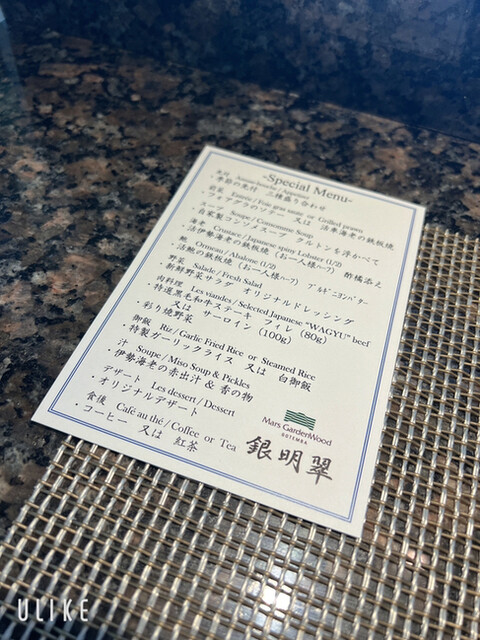 -Special Menu-
先付 Amuse-bouche / Appetizer
・季節の先付 三種盛り合わせ
前菜 Entrée / Foie gras saute or Grilled prawn
・フォアグラのソテー 又は 活車海老の鉄板焼
スープ Soupe / Consomme Soup
・自家製コンソメスープ クルトンを浮かべて
海老 Crustace / Japanese spiny Lobster (1/2)
・活伊勢海老の鉄板焼 (お一人様ハーフ) 酢橘添え
Ormeau / Abalone (1/2)
・活鮑の鉄板焼 (お一人様ハーフ) ブルギニヨンバター
野菜 Salade / Fresh Salad
・新鮮野菜サラダ オリジナルドレッシング
肉料理 Les viandes / Selected Japanese "WAGYU" beef
・特選黒毛和牛ステーキ フィレ (80g)
又は サーロイン (100g)
・彩り焼野菜
御飯 Riz / Garlic Fried Rice or Steamed Rice
・特製ガーリックライス 又は 白御飯
汁 Soupe / Miso Soup & Pickles
・伊勢海老の赤出汁 & 香の物
デザート Les dessert / Dessert
・オリジナルデザート
食後 Café au thé / Coffee or Tea
・コーヒー 又は 紅茶
Mars GardenWood
GOTEMBA
銀明翠
ULIKE